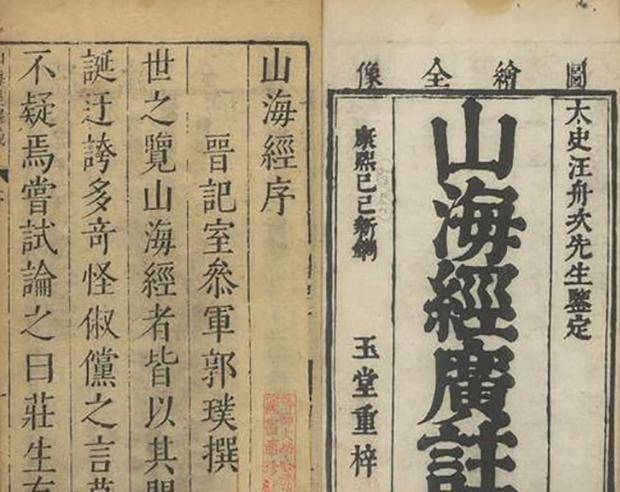 圖繪全像
太史汪舟次先生鑒定
山海經廣註
康熙己巳新鐫
玉堂重梓
山海經序
晉記室叅軍郭璞撰
世之覽山海經者皆以其閎
誕迂誇多奇怪俶儻之言莫
不疑焉嘗試論之曰莊生有